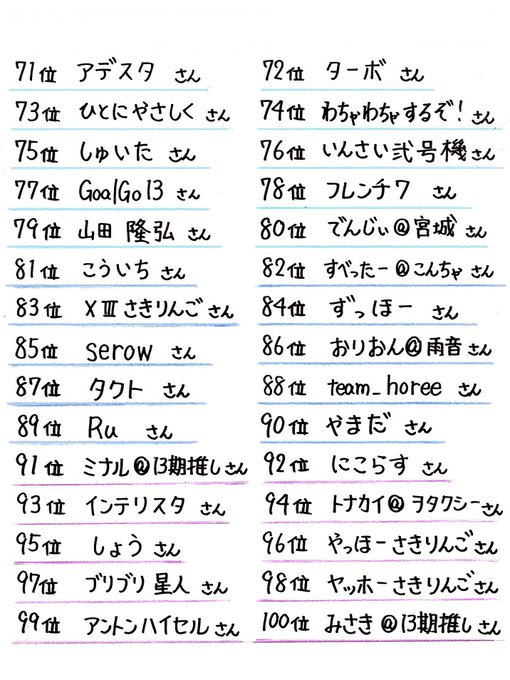 71位 アデスタ さん 72位 ターボ さん
73位 ひとにやさしく さん 74位 わちゃわちゃするぞ！さん
75位 しゅいた さん 76位 いんさい弐号機さん
77位 GoalGo13 さん 78位 フレンチ7 さん
79位 山田 隆弘 さん 80位 でんじぃ@宮城 さん
81位 こういち さん 82位 すべったー@こんちゃ さん
83位 XⅢさきりんごさん 84位 ずっほー さん
85位 serow さん 86位 おりおん@雨音さん
87位 タクト さん 88位 team_horee さん
89位 Ru さん 90位 やまだ さん
91位 ミナル@13期推しさん 92位 にこらす さん
93位 インテリスタ さん 94位 トナカイ@ヲタクシーさん
95位 しょう さん 96位 やっほーさきりんごさん
97位 ブリブリ星人 さん 98位 ヤッホーさきりんごさん
99位 アントンハイセルさん 100位 みさき@13期推しさん